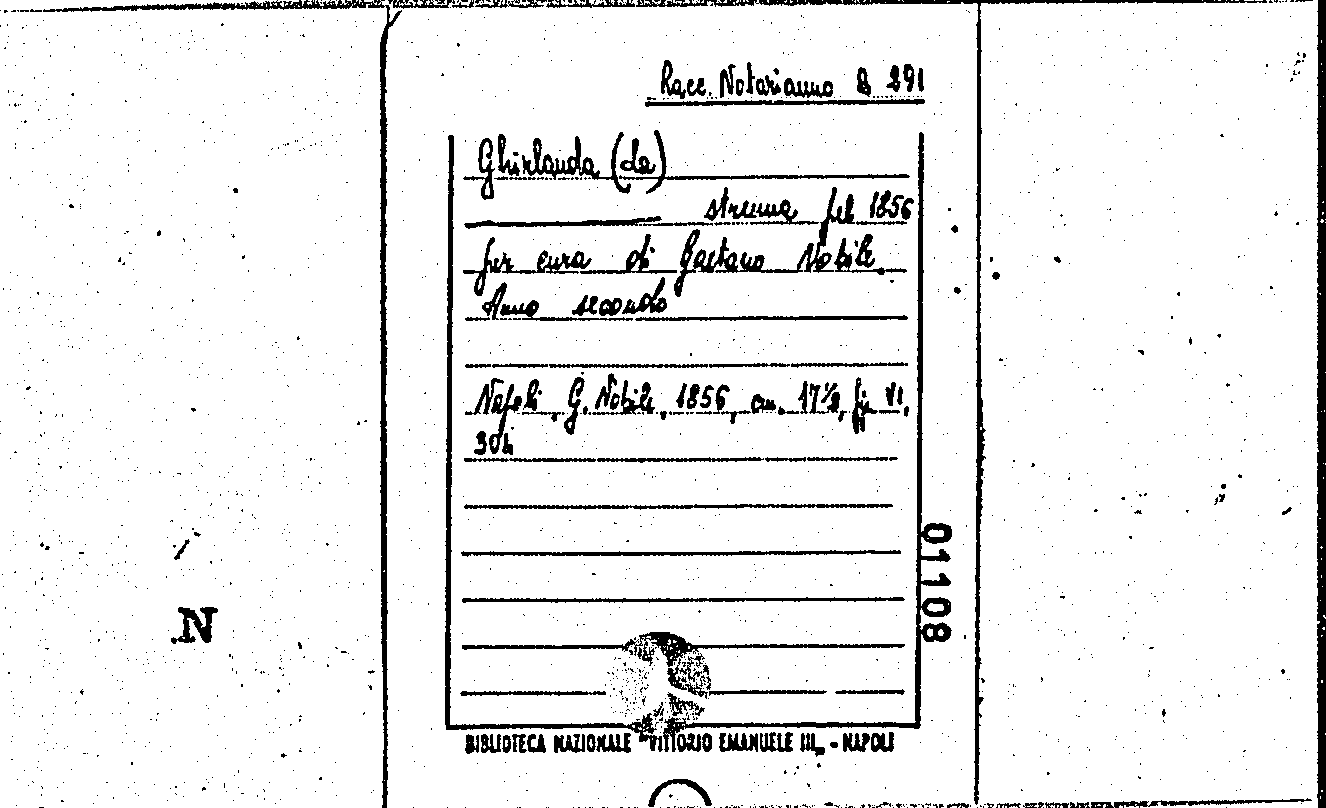 Racc. Notarianno B 291
Ghirlanda (La)
strenna pel 1856
per cura di Gaetano Nobile.
Anno secondo
Napoli, G. Nobile, 1856, cm. 17½, pp VI,
304
01108
N
BIBLIOTECA NAZIONALE "VITTORIO EMANUELE III„ - NAPOLI